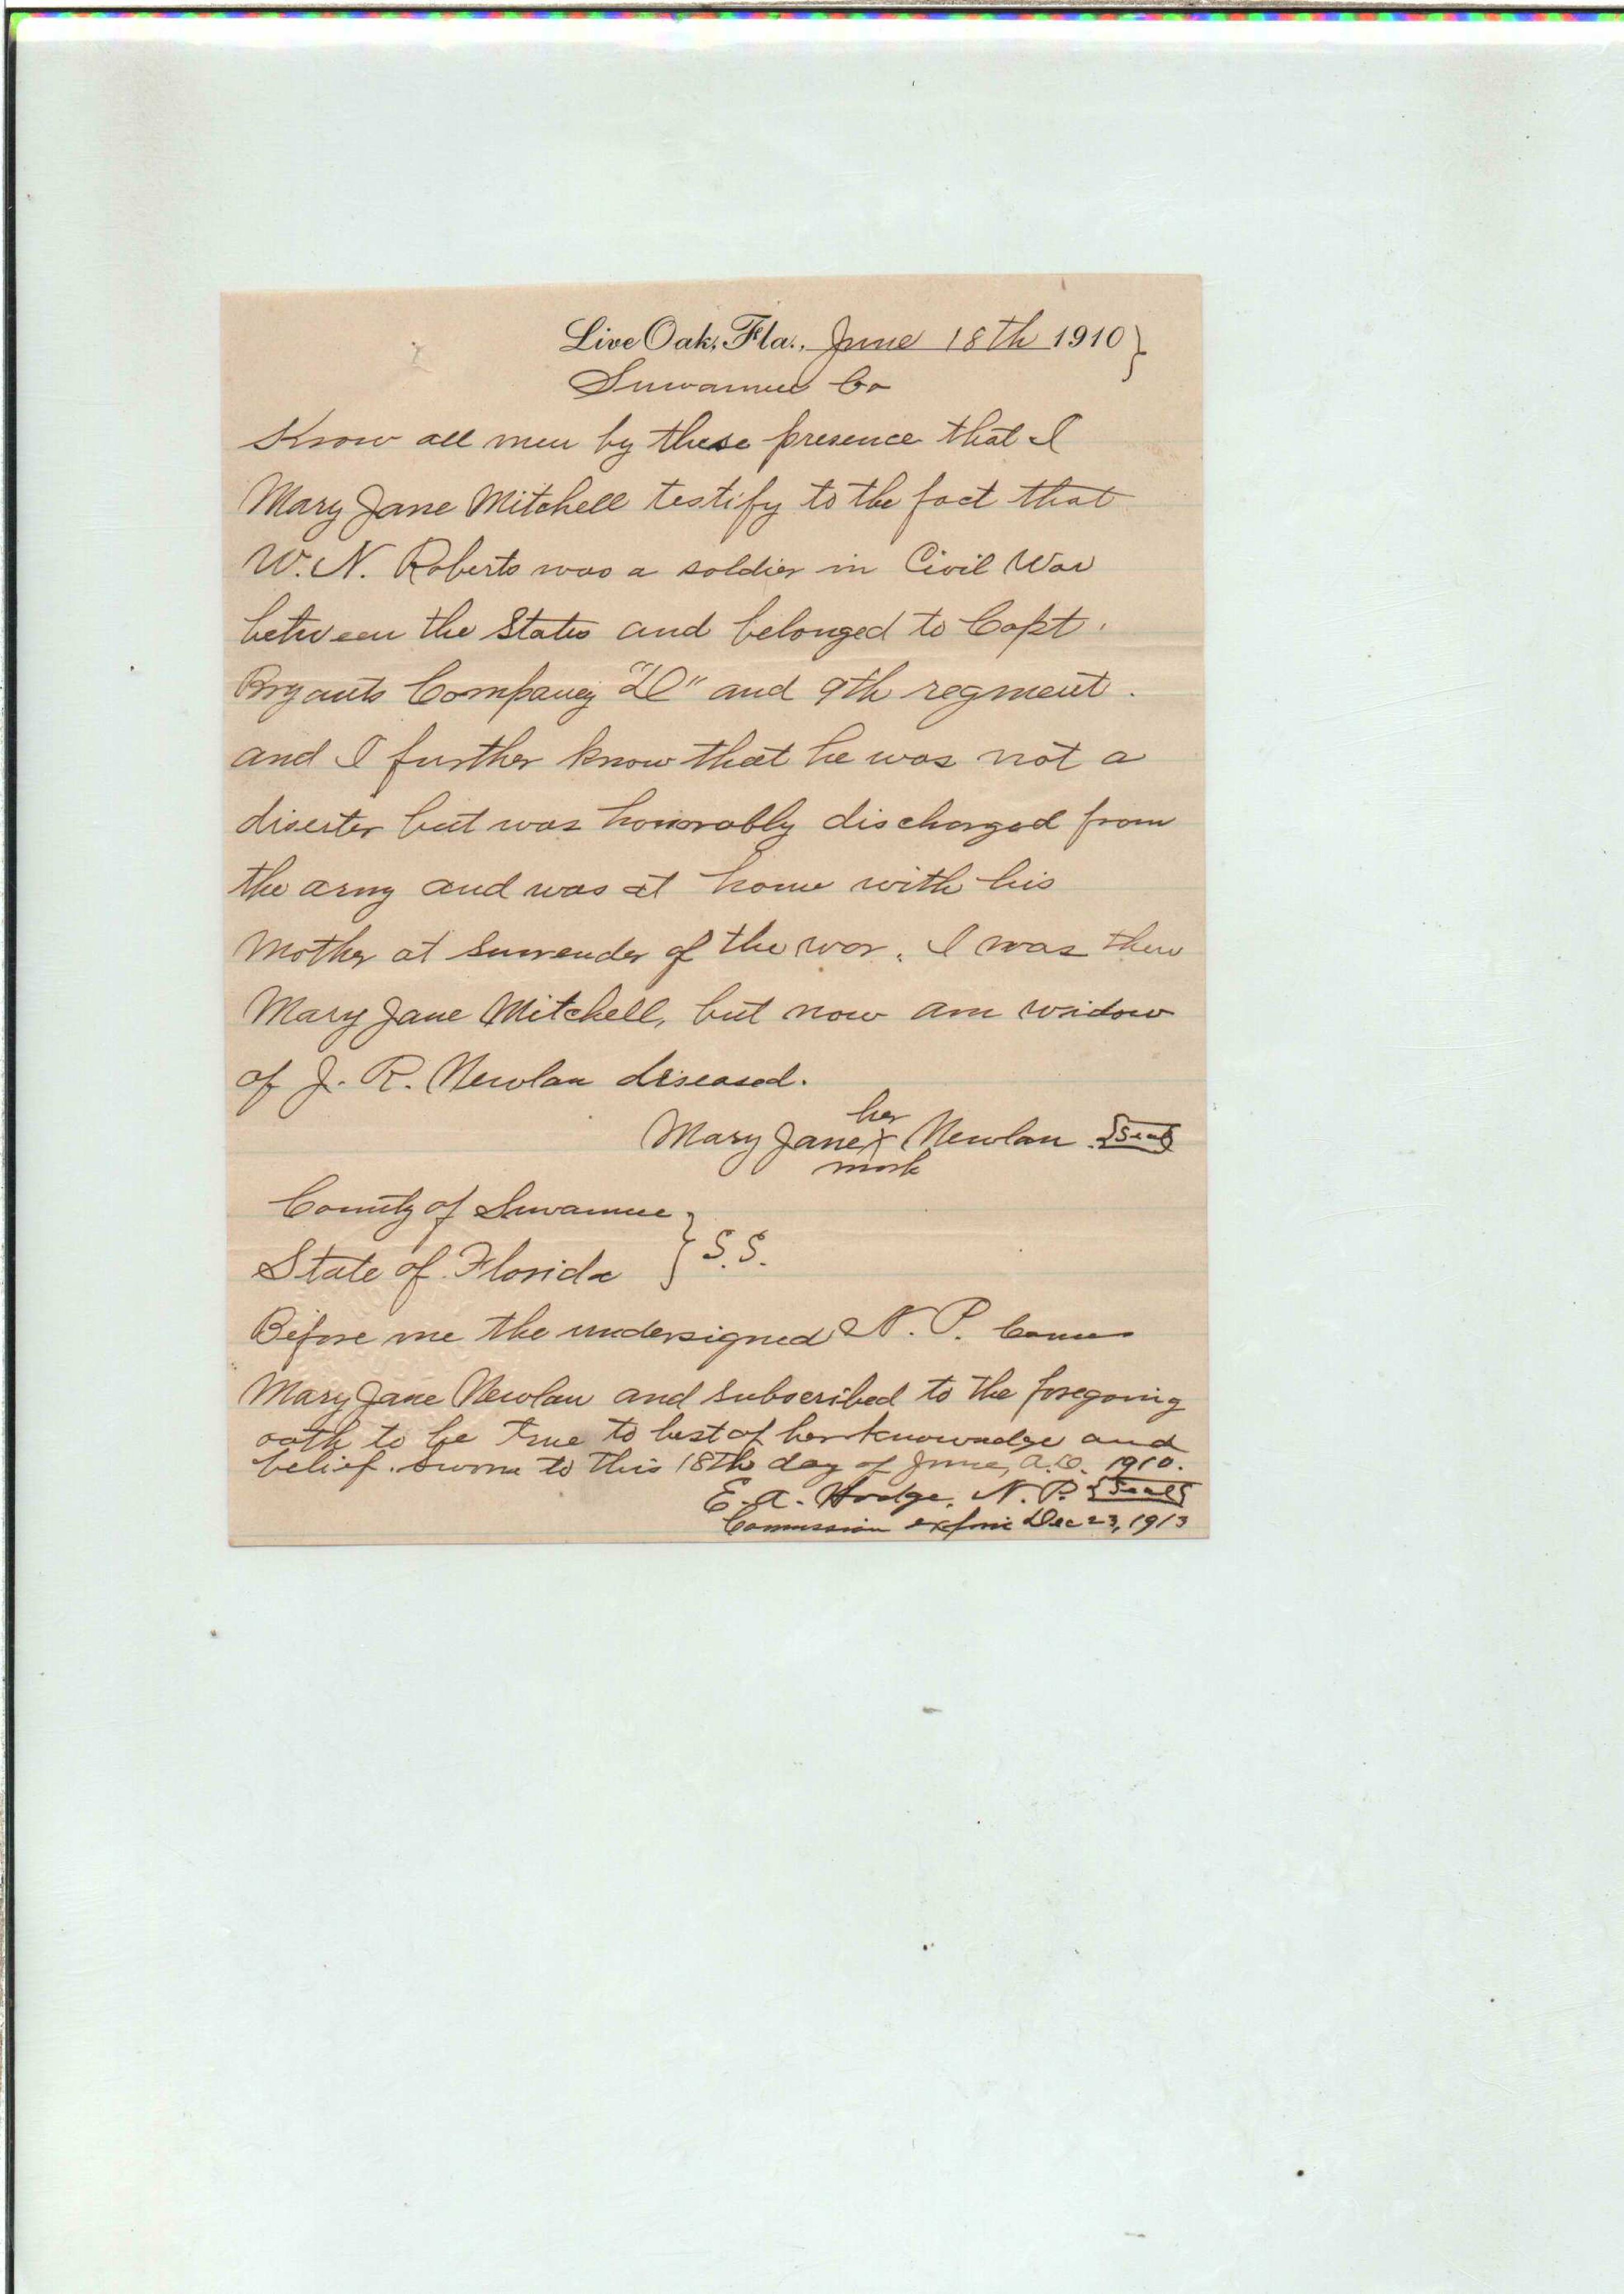 Live Oak, Fla., June 18th 1910 }
Suwannee Co
Know all men by these presence that I
Mary Jane Mitchell testify to the fact that
W. N. Roberts was a soldier in Civil War
between the States and belonged to Capt.
Bryants Company "D" and 9th regment.
and I further know that he was not a
diserter but was honorably discharged from
the army and was at home with his
Mother at surrender of the war. I was then
Mary Jane Mitchell, but now am widow
of J. R. Newlan diseased.
her
Mary Jane X Newlan {Seal}
mark
County of Suwannee
State of Florida } S.S.
Before me the undersigned N. P. Comes
Mary Jane Newlan and subscribed to the foregoing
oath to be true to best of her knowledge and
belief. Sworn to this 18th day of June, A.D. 1910.
E. A. Hodge, N. P. {Seal}
Commission expire Dec 23, 1913